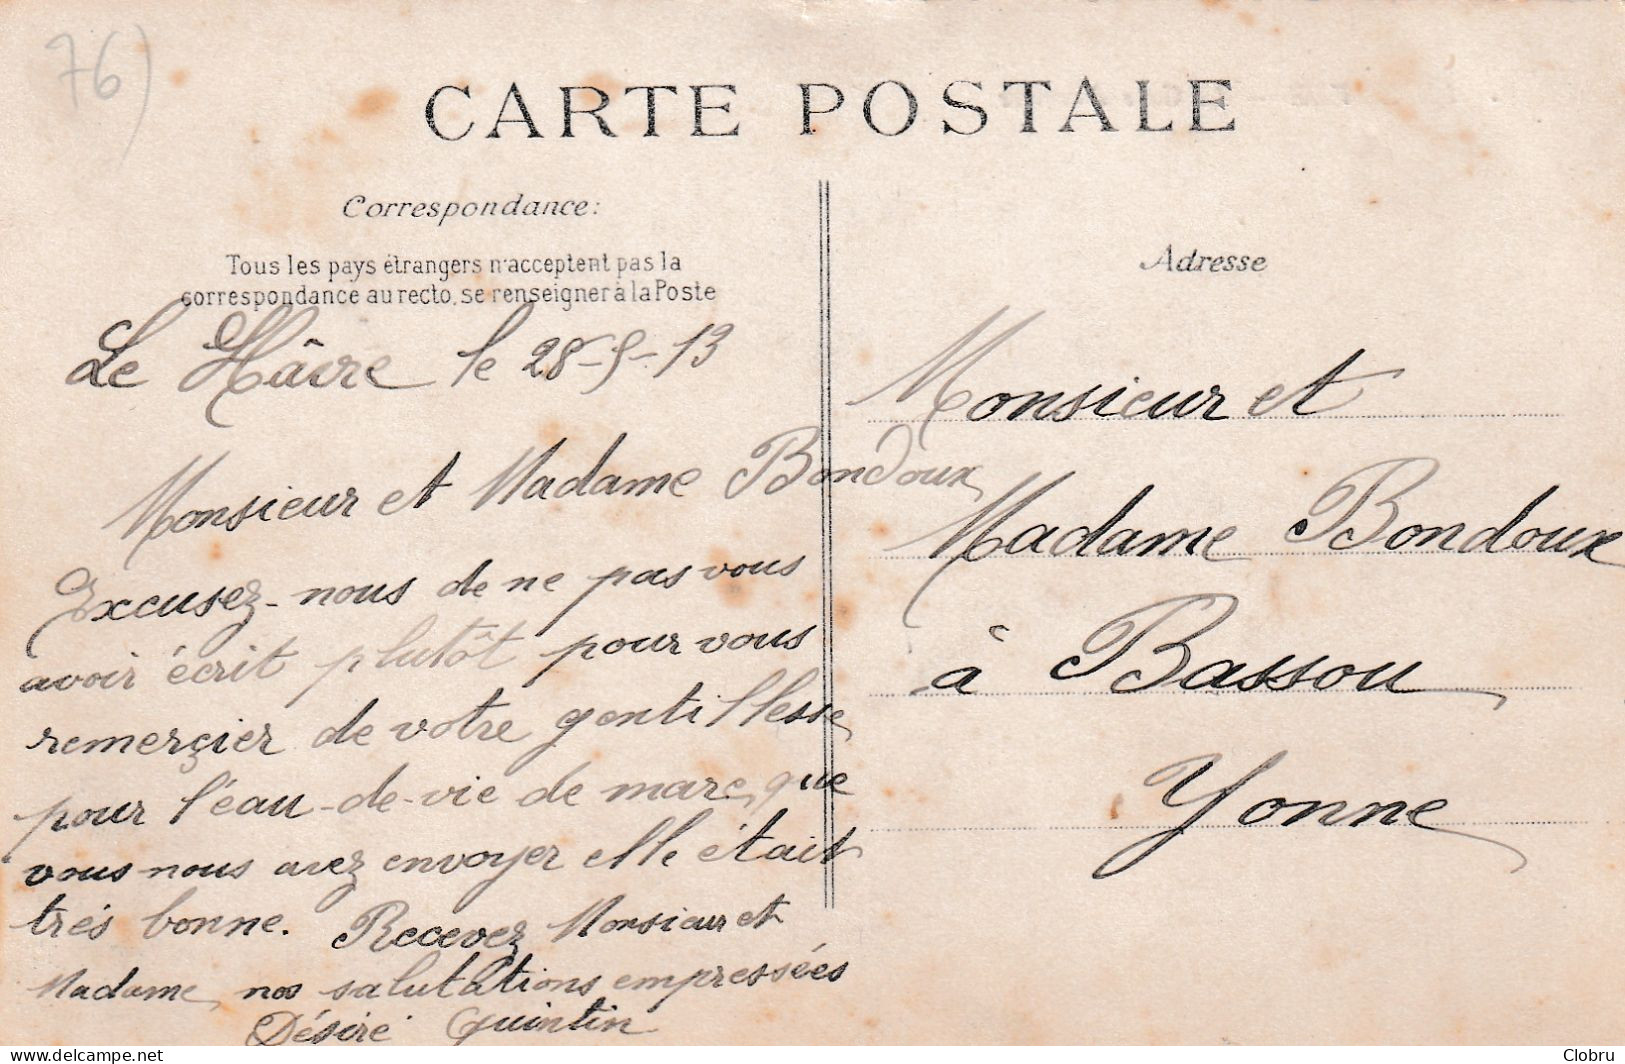 76)
CARTE POSTALE
Correspondance:
Tous les pays étrangers n'acceptent pas la
correspondance au recto, se renseigner à la Poste
Le Hâvre le 28-5-13
Monsieur et Madame Bondoux
Excusez-nous de ne pas vous
avoir écrit plutôt pour vous
remerçier de votre gentillesse
pour l'eau-de-vie de marc, que
vous nous avez envoyer elle était
très bonne. Recevez Monsieur et
Madame, nos salutations empressées
Désiré Quintin
Adresse
Monsieur et
Madame Bondoux
à Bassou
Yonne
delcampe.net
Clobru